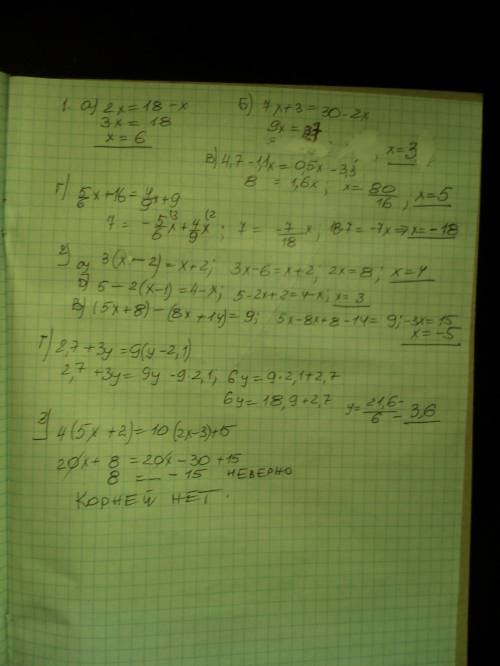 1. а) 2x = 18 - x б) 7x + 3 = 30 - 2x
3x = 18 9x = 27
x = 6 x = 3
в) 4,7 - 1,1x = 0,5x - 3,3
8 = 1,6x; x = 80/16, x = 5
г) 5/6x + 16 = 4/9x + 9
7 = -5/6x + 4/9x; 7 = -7/18x, 18·7 = -7x ⇒ x = -18
2) а) 3(x - 2) = x + 2; 3x - 6 = x + 2, 2x = 8; x = 4
б) 5 - 2(x - 1) = 4 - x, 5 - 2x + 2 = 4 - x; x = 3
в) (5x + 8) - (8x + 14) = 9; 5x - 8x + 8 - 14 = 9; -3x = 15
x = -5
г) 2,7 + 3y = 9(y - 2,1)
2,7 + 3y = 9y - 9·2,1, 6y = 9·2,1 + 2,7
6y = 18,9 + 2,7 y = 21,6/6 = 3,6
3) 4(5x + 2) = 10(2x - 3) + 15
20x + 8 = 20x - 30 + 15
8 = - 15 НЕВЕРНО
КОРНЕЙ НЕТ.